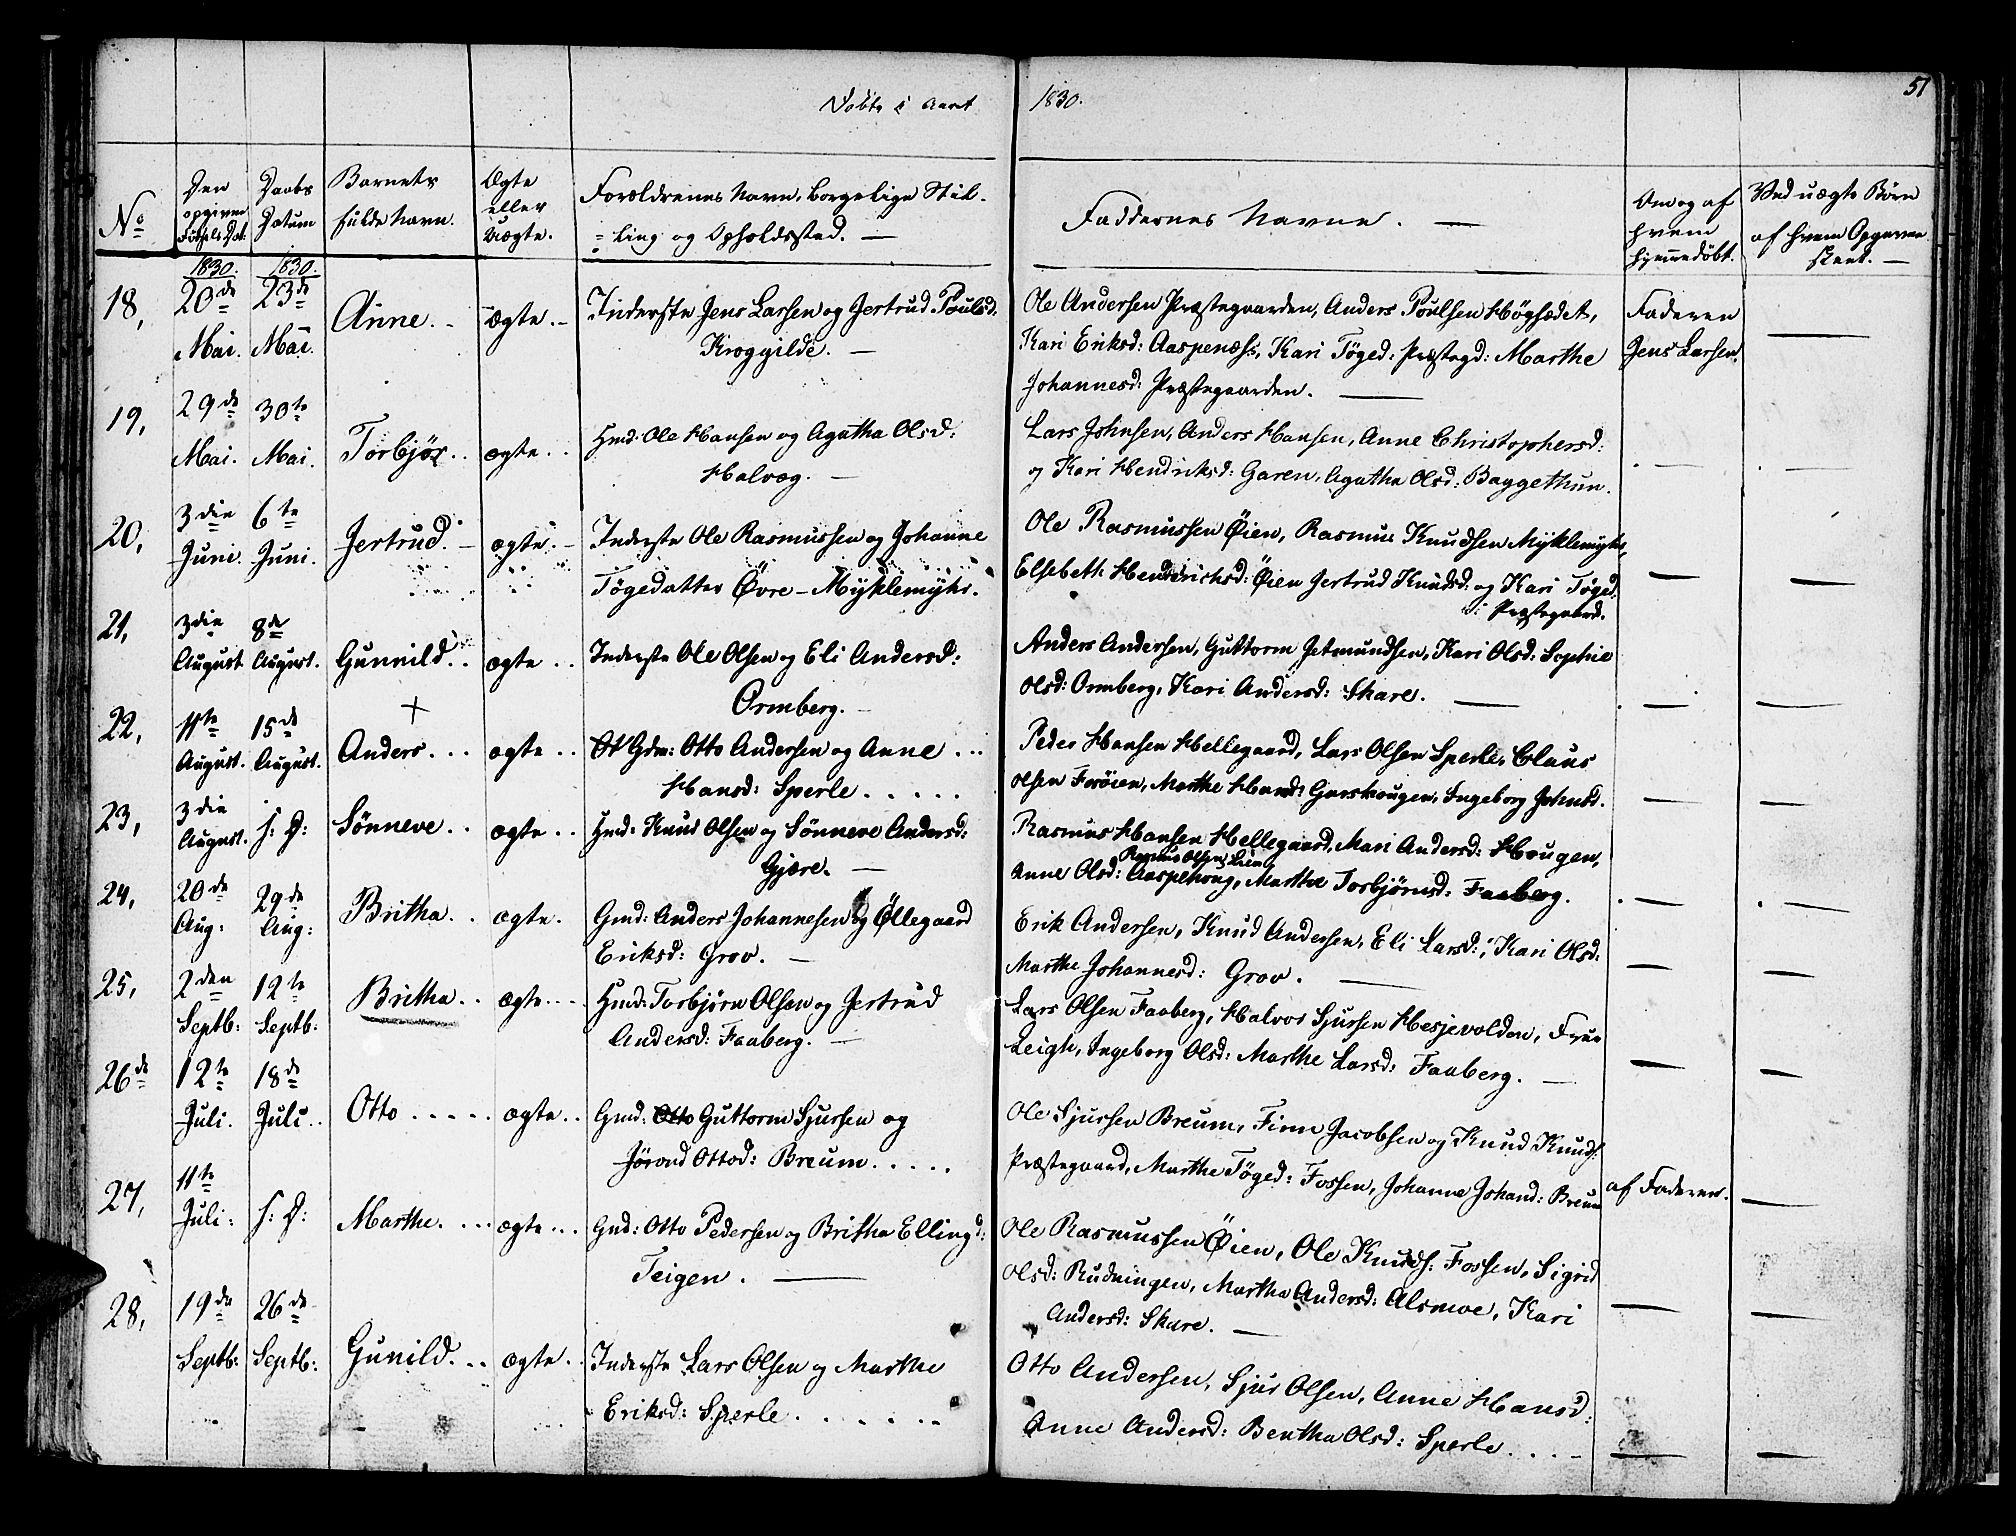 Døbte i Aaret 1830.
51
No
Den opgivne Fødsels Dat:
Daabs Datum
Barnets fulde Navn.
Ægte eller Uægte.
Forældrenes Navn, borgelige Stilling og Opholdssted. —
Faddernes Navne. —
Om og af hvem hjemmedøbt.
Ved uægte Børn af hvem Opgaven skeet. —
1830. 1830.
18, 20de Mai. 23de Mai. Anne. ægte. Inderste Jens Larsen og Jertrud Poulsd.
Kroggilde. —
Ole Andersen Præstegaarden, Anders Poulsen Høgsædet,
Kari Eriksd: Aaspenæss, Kari Tøged: Præstegd: Marthe
Johannesd: Præstegaarden. —
Faderen
Jens Larsen.
19, 29de Mai. 30te Mai. Torbjør.. ægte.. Hmd: Ole Hansen og Agatha Olsd:
Halvæg. —
Lars Johnsen, Anders Hansen, Anne Christophersd:
og Kari Hendriksd: Garen, Agatha Olsd: Baggethun.
20, 3die Juni. 6te Juni. Jertrud. ægte. Inderste Ole Rasmussen og Johanne
Tøgedatter Øvre-Myklemyhr.
Ole Rasmussen Øien, Rasmus Knudsen Myklemyhr,
Elsebeth Hendrichsd: Øien Jertrud Knudsd: og Kari Tøged:
Præstegaard.
21, 3die August 8de August. Gunnild.. ægte.. Inderste Ole Olsen og Eli Andersd:
Ormberg. —
Anders Andersen, Guttorm Jetmundsen, Kari Olsd: Sophie
Olsd: Ormberg, Kari Andersd: Skare. —
22, 11te August. 15de August. Anders... ægte.. Gdm: Otto Andersen og Anne ...
Hansd: Sperle.....
Peder Hansen Hellegaard, Lars Olsen Sperle, Claus
Olsen Forøien, Marthe Hansd: Garshougen, Ingeborg Johnsd.
23, 3die August. s: D: Sønneve.. ægte.. Hmd: Knud Olsen og Sønneve Andersd:
Gjære. —
Rasmus Hansen Hellegaard, Mari Andersd: Hougen,
Rasmus Olsen Lien
Anne Olsd: Aaspehoug, Marthe Torbjørnsd: Faaberg.
24, 20de Aug: 29de Aug: Britha.. ægte. Gmd: Anders Johannesen og Øllegaard
Eriksd: Grov. —
Erik Andersen, Knud Andersen, Eli Larsd:, Kari Olsd:
Marthe Johannesd: Grov. —
25, 2den Septb: 12te Septb: Britha.. ægte.... Hmd: Torbjørn Olsen og Jertrud
Andersd: Faaberg. —
Lars Olsen Faaberg, Halvor Sjursen Hesjevolden, Frue
Leigh, Ingeborg Olsd: Marthe Larsd: Faaberg. —
26de 12te Juli. 18de Juli.. Otto..... ægte.. Gmd: Otto Guttorm Sjursen og
Jørand Ottod: Breum.....
Ole Sjursen Breum, Finn Jacobsen og Knud Knuds:
Præstegaard, Marthe Tøged: Fossen, Johanne Johand: Breum
af Faderen.
27, 11te Juli: s: D: Marthe.... ægte... Gmd: Otto Pedersen og Britha Ellingd:
Teigen. —
Ole Rasmussen Øien, Ole Knuds: Fossen, Sigrid
Olsd: Rudningen, Martha Andersd: Alsmoe, Kari
Andersd: Skare. —
28, 19de Septb: 26de Septb: Gunild... ægte.. Inderste Lars Olsen og Marthe
Eriksd: Sperle.......
Otto Andersen, Sjur Olsen, Anne Hansd:
Anne Andersd: Bentha Olsd: Sperle....